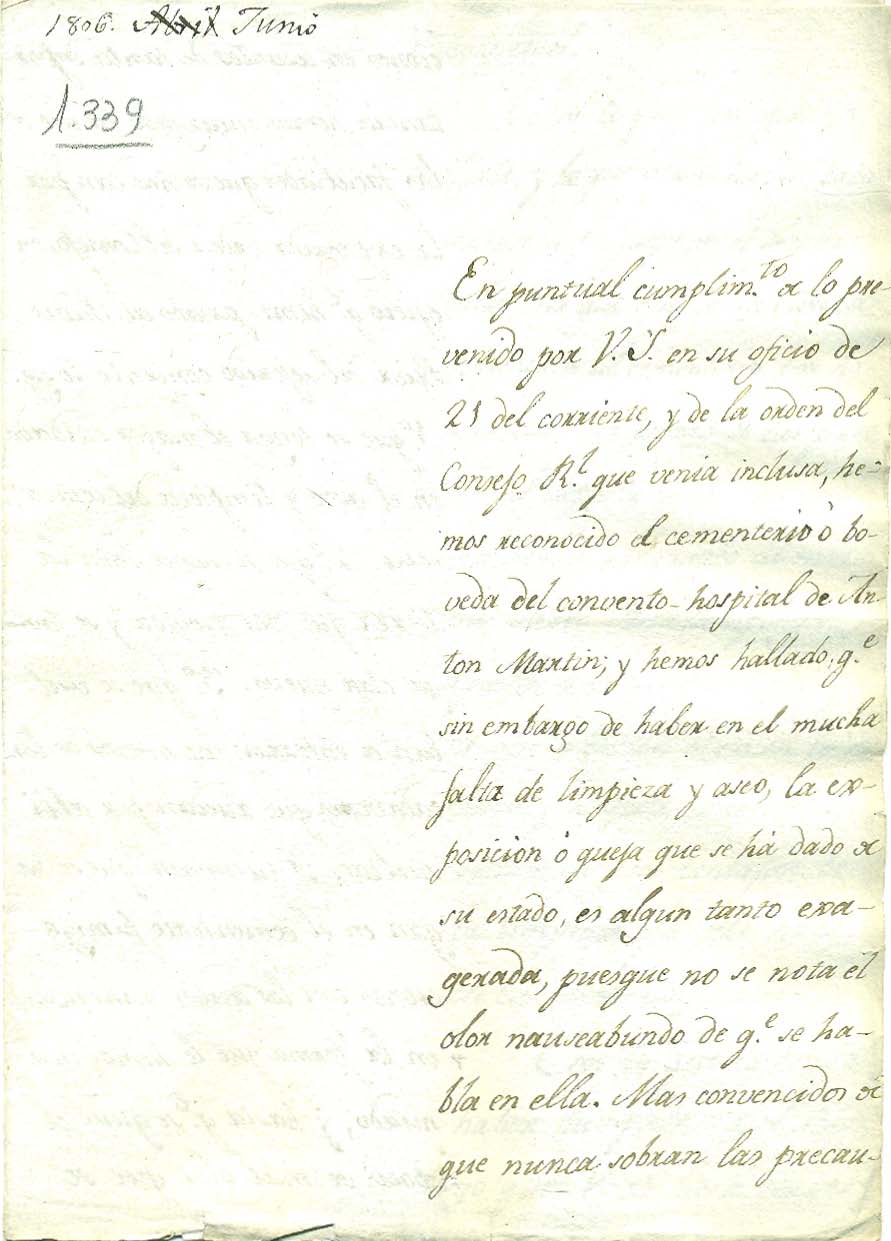 1806. Abril Junio
1.339
En puntual cumplim.to de lo pre-
venido por V.S. en su oficio de
21 del corriente, y de la orden del
Consejo R.l que venia inclusa, he-
mos reconocido el cementerio ò bo-
veda del convento-hospital de An-
ton Martin; y hemos hallado, q.e
sin embargo de haber en el mucha
falta de limpieza y aseo, la ex-
posicion ò queja que se há dado de
su estado, es algun tanto exa-
gerada, puesque no se nota el
olor nauseabundo de q.e se ha-
bla en ella. Mas convencidos de
que nunca sobran las precau-